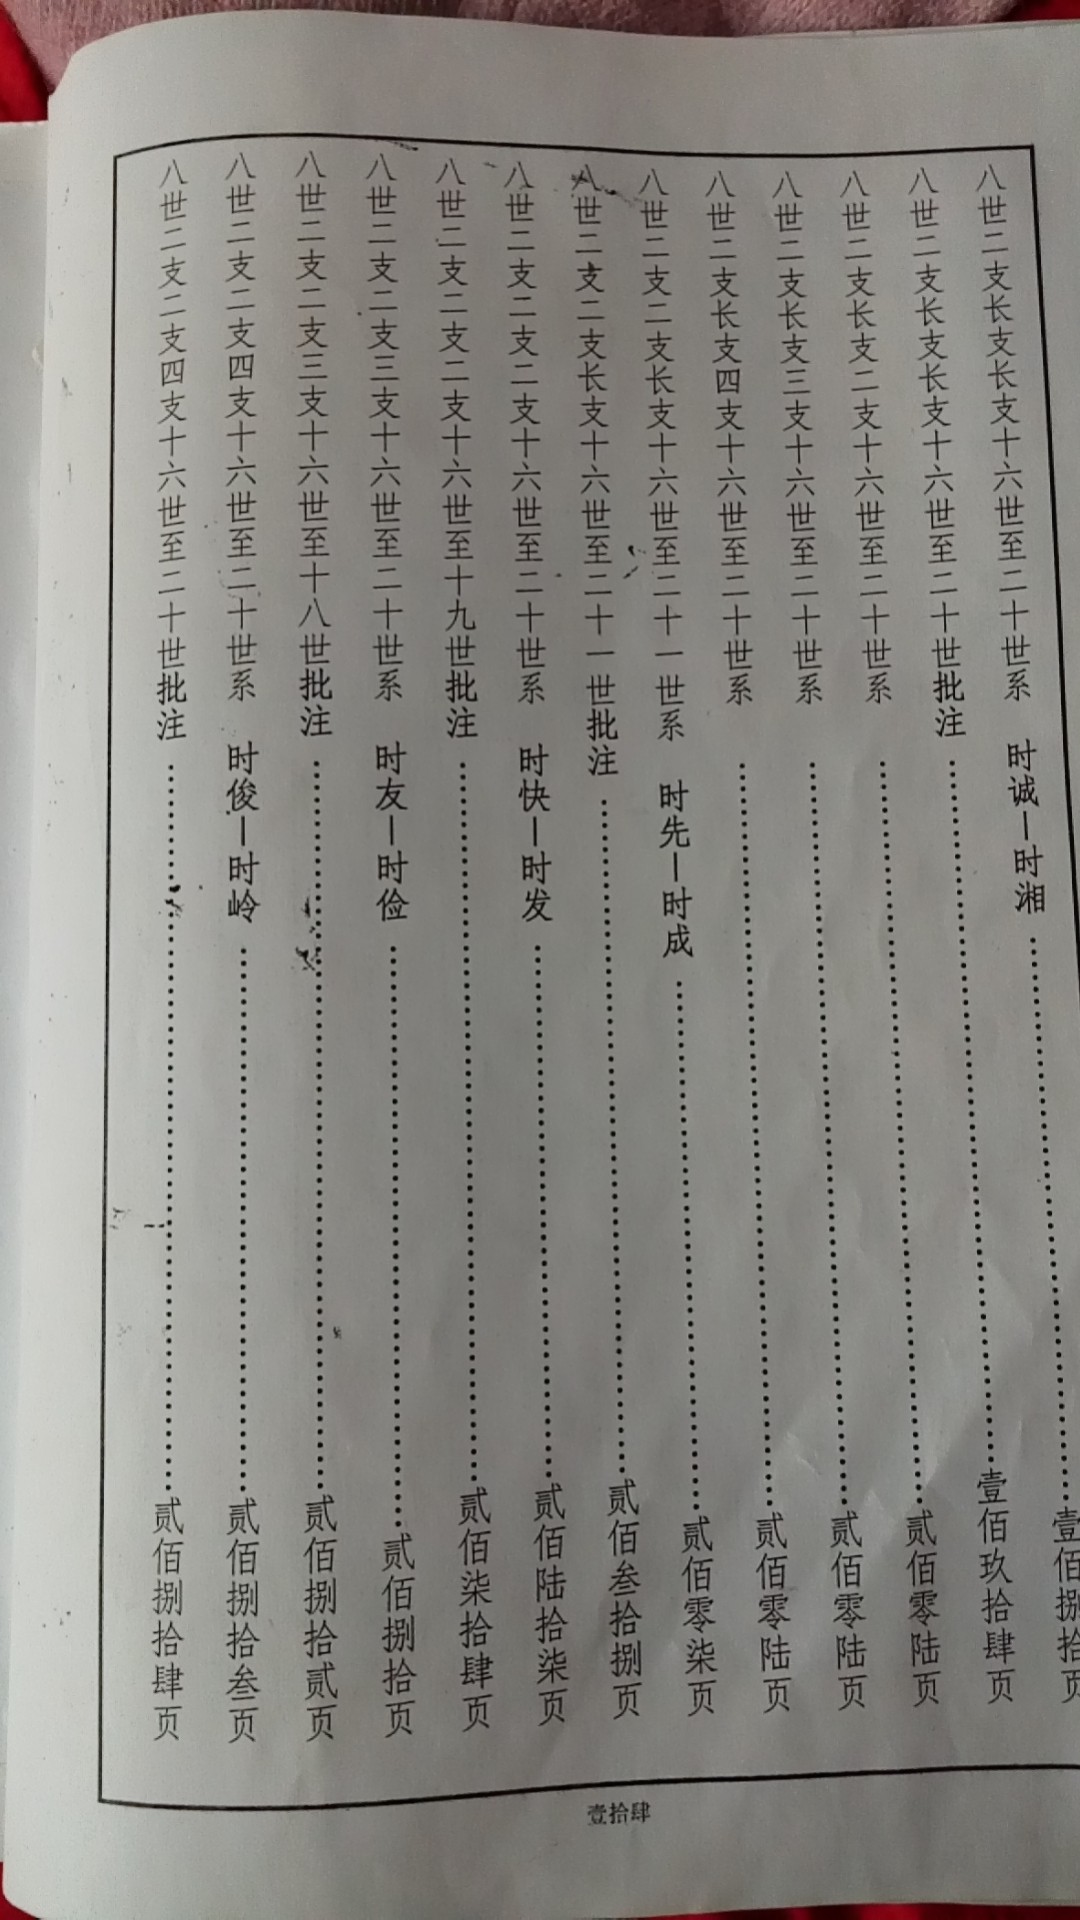 八世二支长支长支十六世至二十世系 时诚—时湘……壹佰捌拾页
八世二支长支长支十六世至二十世批注……壹佰玖拾肆页
八世二支长支二支十六世至二十世系……贰佰零陆页
八世二支长支三支十六世至二十世系……贰佰零陆页
八世二支长支四支十六世至二十世系……贰佰零陆页
八世二支二支长支十六世至二十一世系 时先—时成……贰佰零柒页
八世二支二支长支十六世至二十一世批注……贰佰叁拾捌页
八世二支二支二支十六世至二十世系 时快—时发……贰佰陆拾柒页
八世二支二支二支十六世至十九世批注……贰佰柒拾肆页
八世二支二支三支十六世至二十世系 时友—时俭……贰佰捌拾页
八世二支二支三支十六世至十八世批注……贰佰捌拾贰页
八世二支二支四支十六世至二十世系 时俊—时岭……贰佰捌拾叁页
八世二支二支四支十六世至二十世批注……贰佰捌拾肆页
壹拾肆